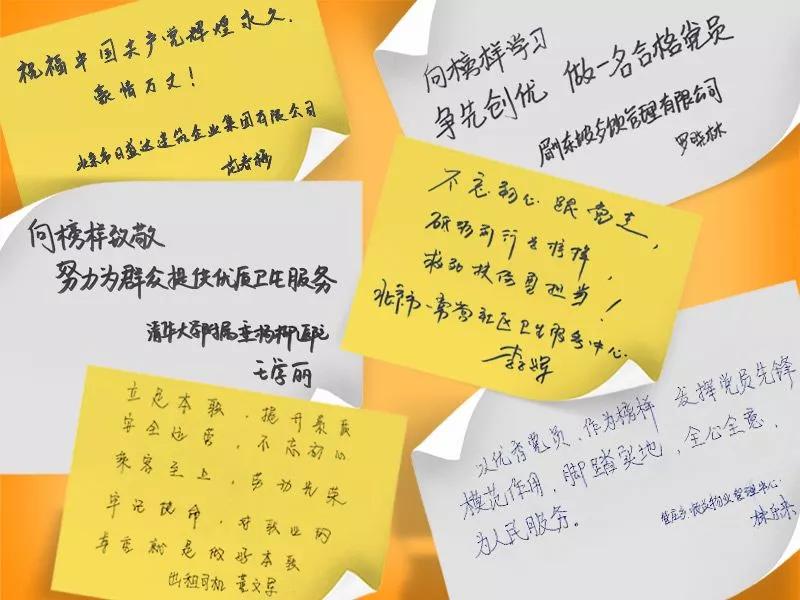 祝福中国共产党辉煌永久.
豪情万丈！
北京市日盛达建筑企业集团有限公司
向榜样学习
争先创优 做一名合格党员
眉州东坡餐饮管理有限公司
罗晓林
不忘初心跟党走，
砥砺前行
勇担当！
北京市常营社区卫生服务中心
李辉
向榜样致敬
努力为群众提供优质卫生服务
清华大学附属垂杨柳医院
王学丽
立足本职，提升
安全运营，不忘初心
乘客至上，劳动光荣
牢记使命，对职业的
尊重就是做好本职
出租司机 董文军
以优秀党员，作为榜样 发挥党员先锋
模范作用，脚踏实地，全心全意，
为人民服务。
物业管理中心
林乐来